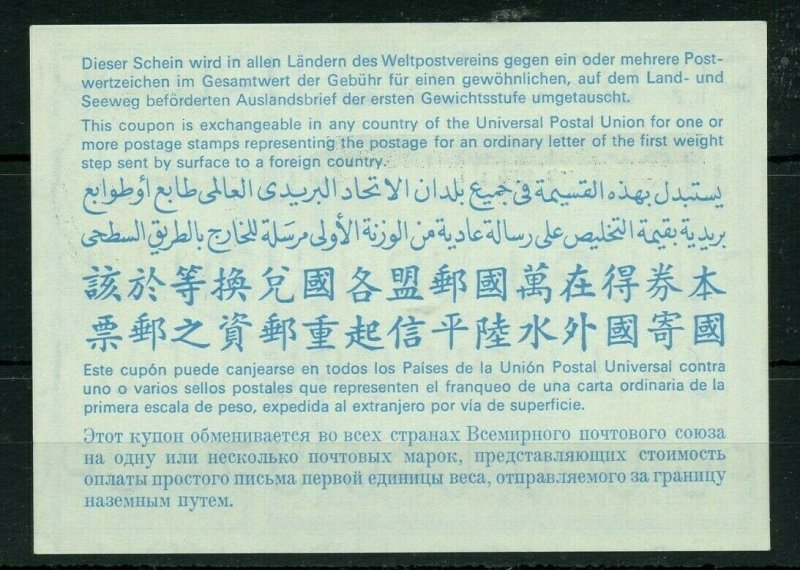 Dieser Schein wird in allen Ländern des Weltpostvereins gegen ein oder mehrere Post-
wertzeichen im Gesamtwert der Gebühr für einen gewöhnlichen, auf dem Land- und
Seeweg beförderten Auslandsbrief der ersten Gewichtsstufe umgetauscht.
This coupon is exchangeable in any country of the Universal Postal Union for one or
more postage stamps representing the postage for an ordinary letter of the first weight
step sent by surface to a foreign country.
يستبدل بهذه القسيمة فى جميع بلدان الاتحاد البريدى العالمى طابع أو طوابع
بريدية بقيمة التخليص على رسالة عادية من الوزنة الأولى مرسلة للخارج بالطريق السطحى
本券得在萬國郵盟各國兌換等於該
國寄國外水陸平信起重郵資之郵票
Este cupón puede canjearse en todos los Países de la Unión Postal Universal contra
uno o varios sellos postales que representen el franqueo de una carta ordinaria de la
primera escala de peso, expedida al extranjero por vía de superficie.
Этот купон обменивается во всех странах Всемирного почтового союза
на одну или несколько почтовых марок, представляющих стоимость
оплаты простого письма первой единицы веса, отправляемого за границу
наземным путем.